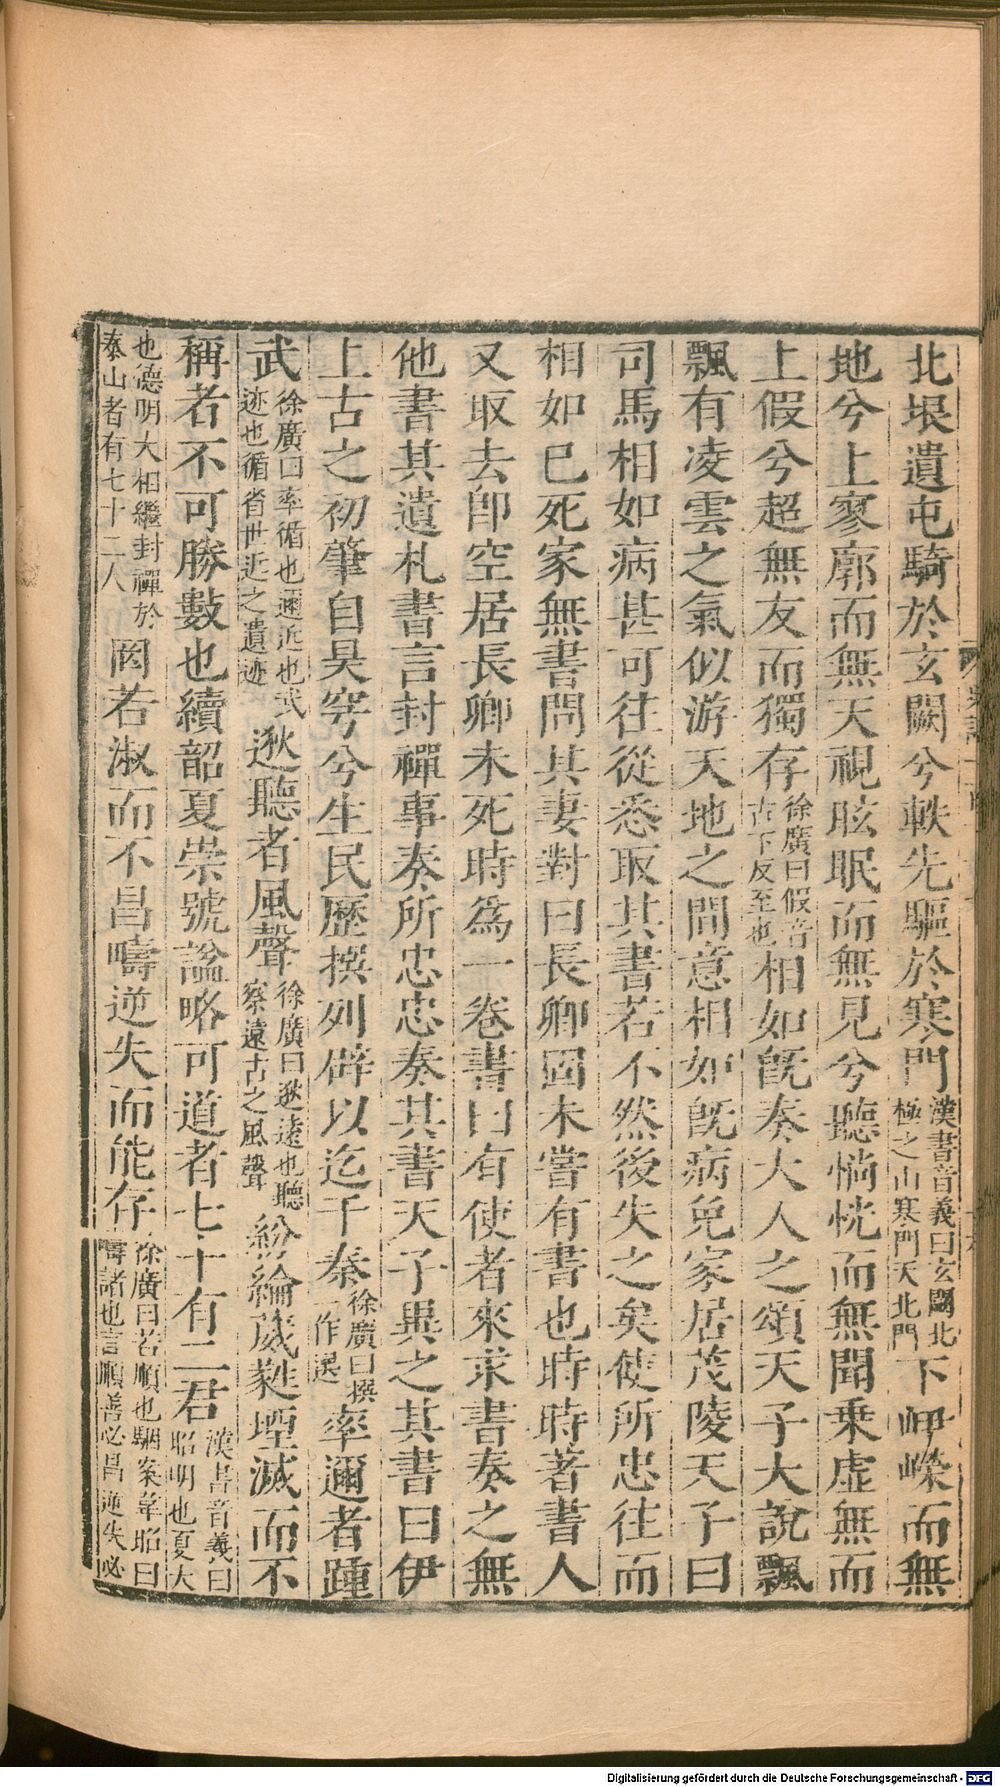 北垠遺屯騎於玄闕兮軼先驅於寒門漢書音義曰玄闕北極之山寒門天北門下岬嶸而無
地兮上寥廓而無天視眩眠而無見兮聽惝恍而無聞乗虛無而
上假兮超無友而獨存徐廣曰假音古下反至也相如旣奏大人之頌天子大說飄
飄有凌雲之氣似游天地之間意相如旣病免家居茂陵天子曰
司馬相如病甚可往從悉取其書若不然後失之矣使所忠往而
相如已死家無書問其妻對曰長卿固未嘗有書也時時著書人
又取去卽空居長卿未死時爲一卷書曰有使者來求書奏之無
他書其遺札書言封禪事奏所忠忠奏其書天子異之其書曰伊
上古之初肇自昊穹兮生民歷撰列辟以迄于秦徐廣曰撰一作選率邇者踵
武徐廣曰率循也邇近也武迹也循省世近之遺迹逖聽者風聲徐廣曰逖遠也聽察遠古之風聲紛綸葳蕤堙滅而不
稱者不可勝數也續韶夏崇號謚略可道者七十有二君漢書音義曰昭明也夏大
也德明大相繼封禪於泰山者有七十二人罔若淑而不昌疇逆失而能存徐廣曰若順也駰案韋昭曰疇諸也言順善必昌逆失必
Digitalisierung gefördert durch die Deutsche Forschungsgemeinschaft - DFG